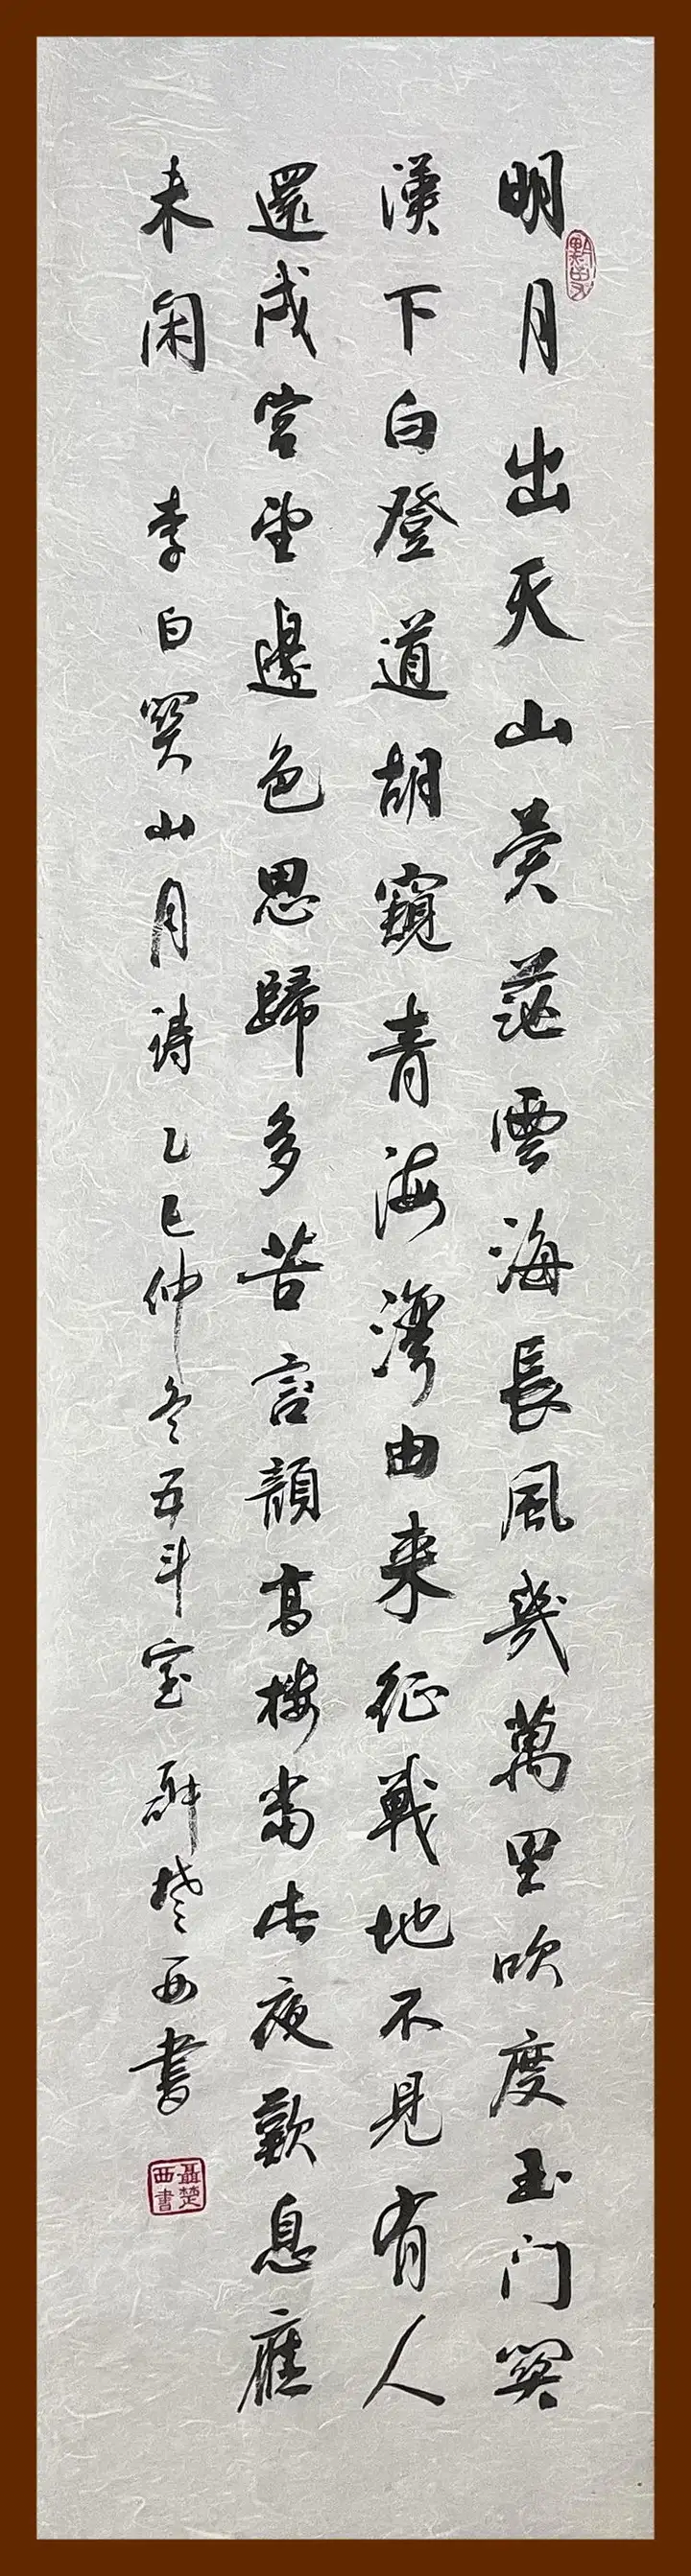 明月出天山蒼茫雲海長風幾萬里吹度玉门關
漢下白登道胡窺青海灣由来征戰地不見有人
還戍客望邊色思歸多苦言顏高樓當此夜歎息應
未闲 李白關山月詩 乙巳仲冬五斗室聶楚西書
聶楚西書